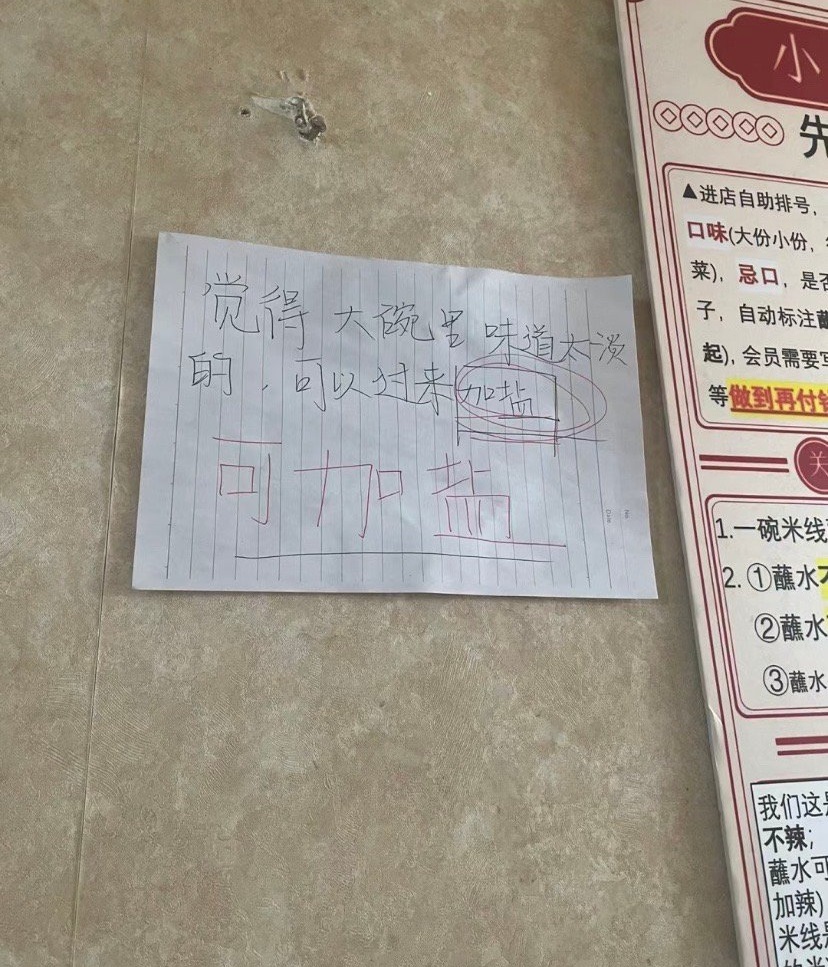 觉得 大碗里 味道太淡
的，可以过来加盐
可加盐
No.
Date
小
先
▲进店自助排号，
口味(大份小份，
菜)，忌口，是否
子，自动标注蘸
起)，会员需要写
等做到再付钱
关
1.一碗米线
2.①蘸水不
②蘸水
③蘸水
我们这是
不辣；
蘸水可
加辣)
米线是